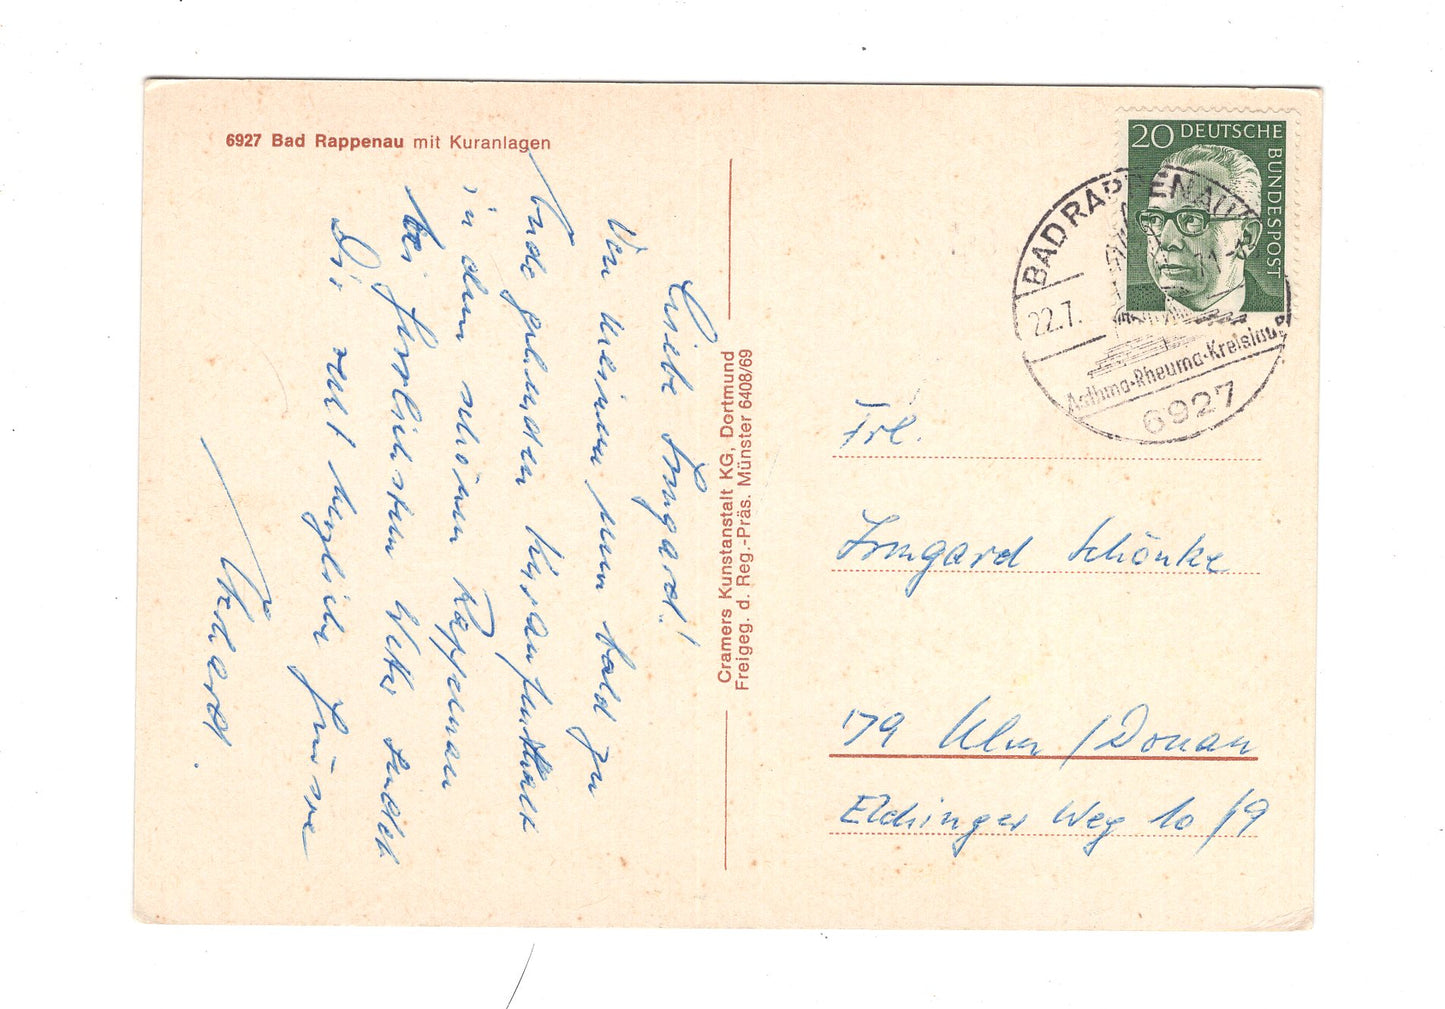 6927 Bad Rappenau mit Kuranlagen
Liebe Irmgard!
Von meinem nun bald zu
Ende gehenden Kuraufenthalt
in dem schönen Rappenau
bei herrlichstem Wetter sendet
Dir recht herzliche Grüsse
Cramers Kunstanstalt KG, Dortmund
Freigeg. d. Reg.-Präs. Münster 6408/69
20 DEUTSCHE
BUNDESPOST
BAD RAPPENAU
22.7. 71
Asthma-Rheuma-Kreislauf
6927
Frl.
Irmgard Schönke
79 Ulm / Donau
Elchinger Weg 10/9